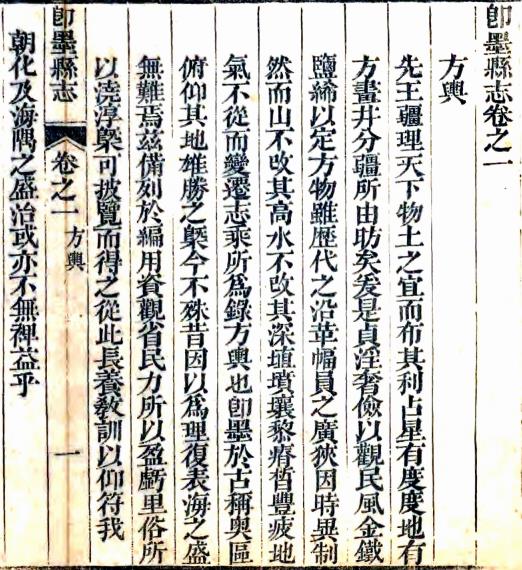 卽墨縣志卷之一
方輿
先王疆理天下物土之宜而布其利占星有度度地有
方畫井分疆所由昉矣爰是貞淫奢儉以觀民風金鐵
鹽絺以定方物雖歷代之沿革幅員之廣狹因時異制
然而山不改其高水不改其深埴墳壤黎瘠皙豐疲地
氣不從而變遷志乘所爲錄方輿也卽墨於古稱奧區
俯仰其地雄勝之槩今不殊昔因以爲理復表海之盛
無難焉茲備列於編用資觀省民力所以盈虧里俗所
以澆淳槩可披覽而得之從此長養敎訓以仰符我
卽墨縣志 卷之一 方輿 一
朝化及海隅之盛治或亦不無裨益乎